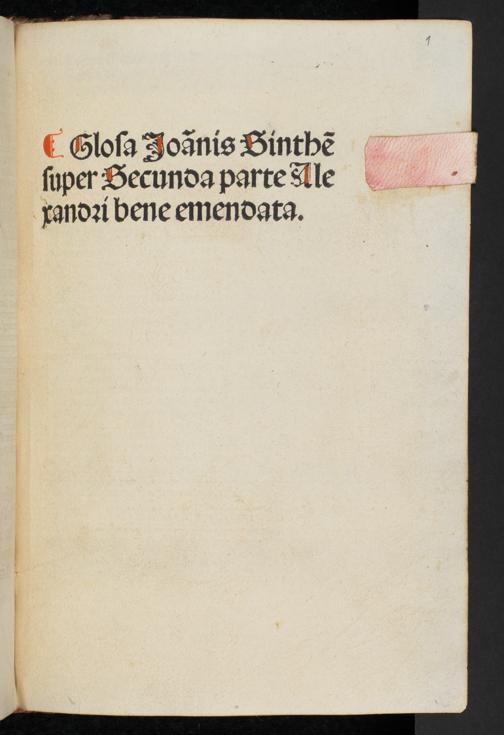 1
⸿ Gloſa Joãnis Sinthẽ
ſuper Secunda parte Ale
xandri bene emendata.